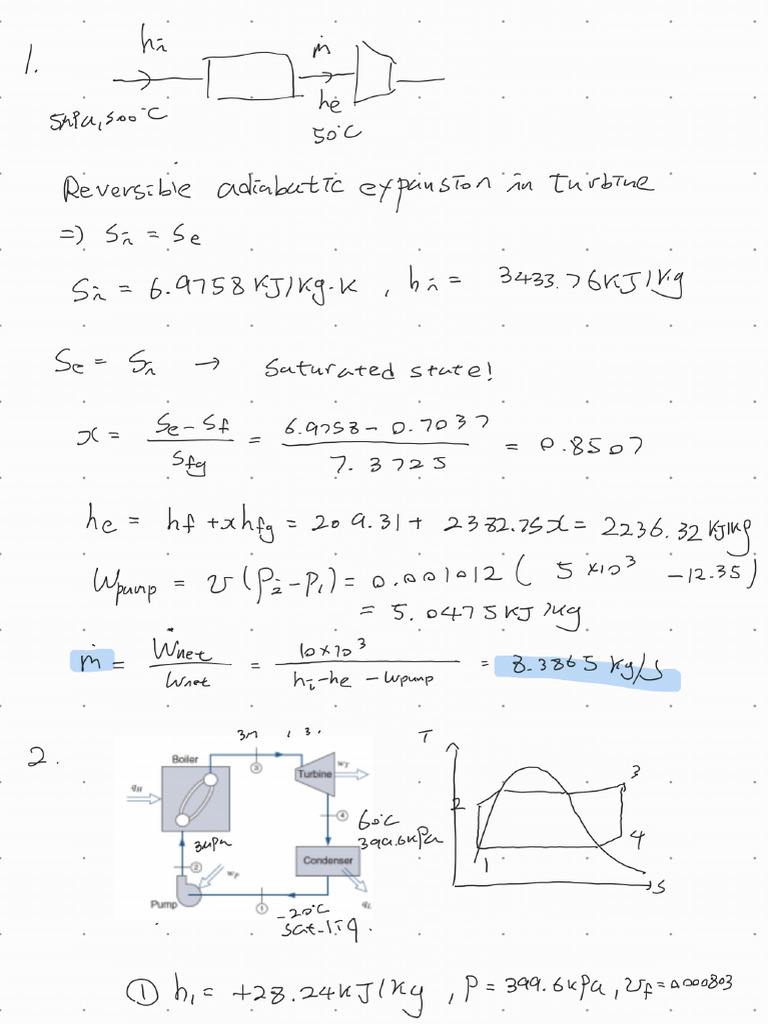 1.
hi
ṁ
he
5MPa, 500°C
50°C
Reversible adiabatic expansion in turbine
=) Si = Se
Si = 6.9758 KJ/Kg·K , hi = 3433.76 KJ/Kg
Se = Si → Saturated state!
x = (Se - Sf)/Sfg = (6.9758 - 0.7037)/7.3725 = 0.8507
he = hf + xhfg = 209.31 + 2382.75x = 2236.32 KJ/Kg
Wpump = v(P2 - P1) = 0.001012 ( 5 ×10³ - 12.35)
= 5.0475 KJ/Kg.
ṁ = Ẇnet/Wnet = 10×10³/(hi - he - Wpump) = 8.3865 Kg/s
2.
Boiler
Turbine
wT
T
3
qH
3
4
60°C
399.6KPa
2
3MPa
Condenser
2
4
1
wP
Pump
1
qL
-20°C
Sat-liq.
S
① h1 = +28.24 KJ/Kg , P = 399.6 KPa , vf = 0.000803